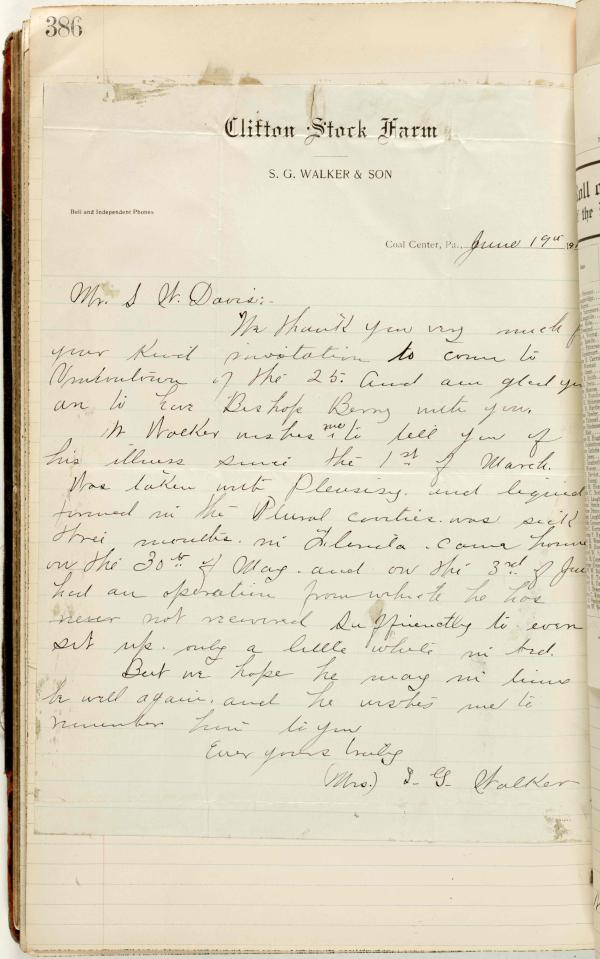 386
Clifton Stock Farm
S. G. WALKER & SON
Bell and Independent Phones
Coal Center, Pa., June 19th 19
Mr. S W. Davis:-
We thank you very much
your kind invitation to come to
Uniontown of the 25. And am glad you
are to have Bishop Berry with you.
Mr Walker wishes me to tell you of
his illness since the 1st of March.
Was taken with Pleurisy. and liquid
formed in the Plural cavities. was sick
three months. in Florida. came home
on the 30th of May. and on the 3rd of June
had an operation from which he has
never not recovered sufficiently to even
set up. only a little while in bed.
But we hope he may in time
be well again. and he wishes me to
remember him to you
Ever yours truly
(Mrs.) S. G. Walker